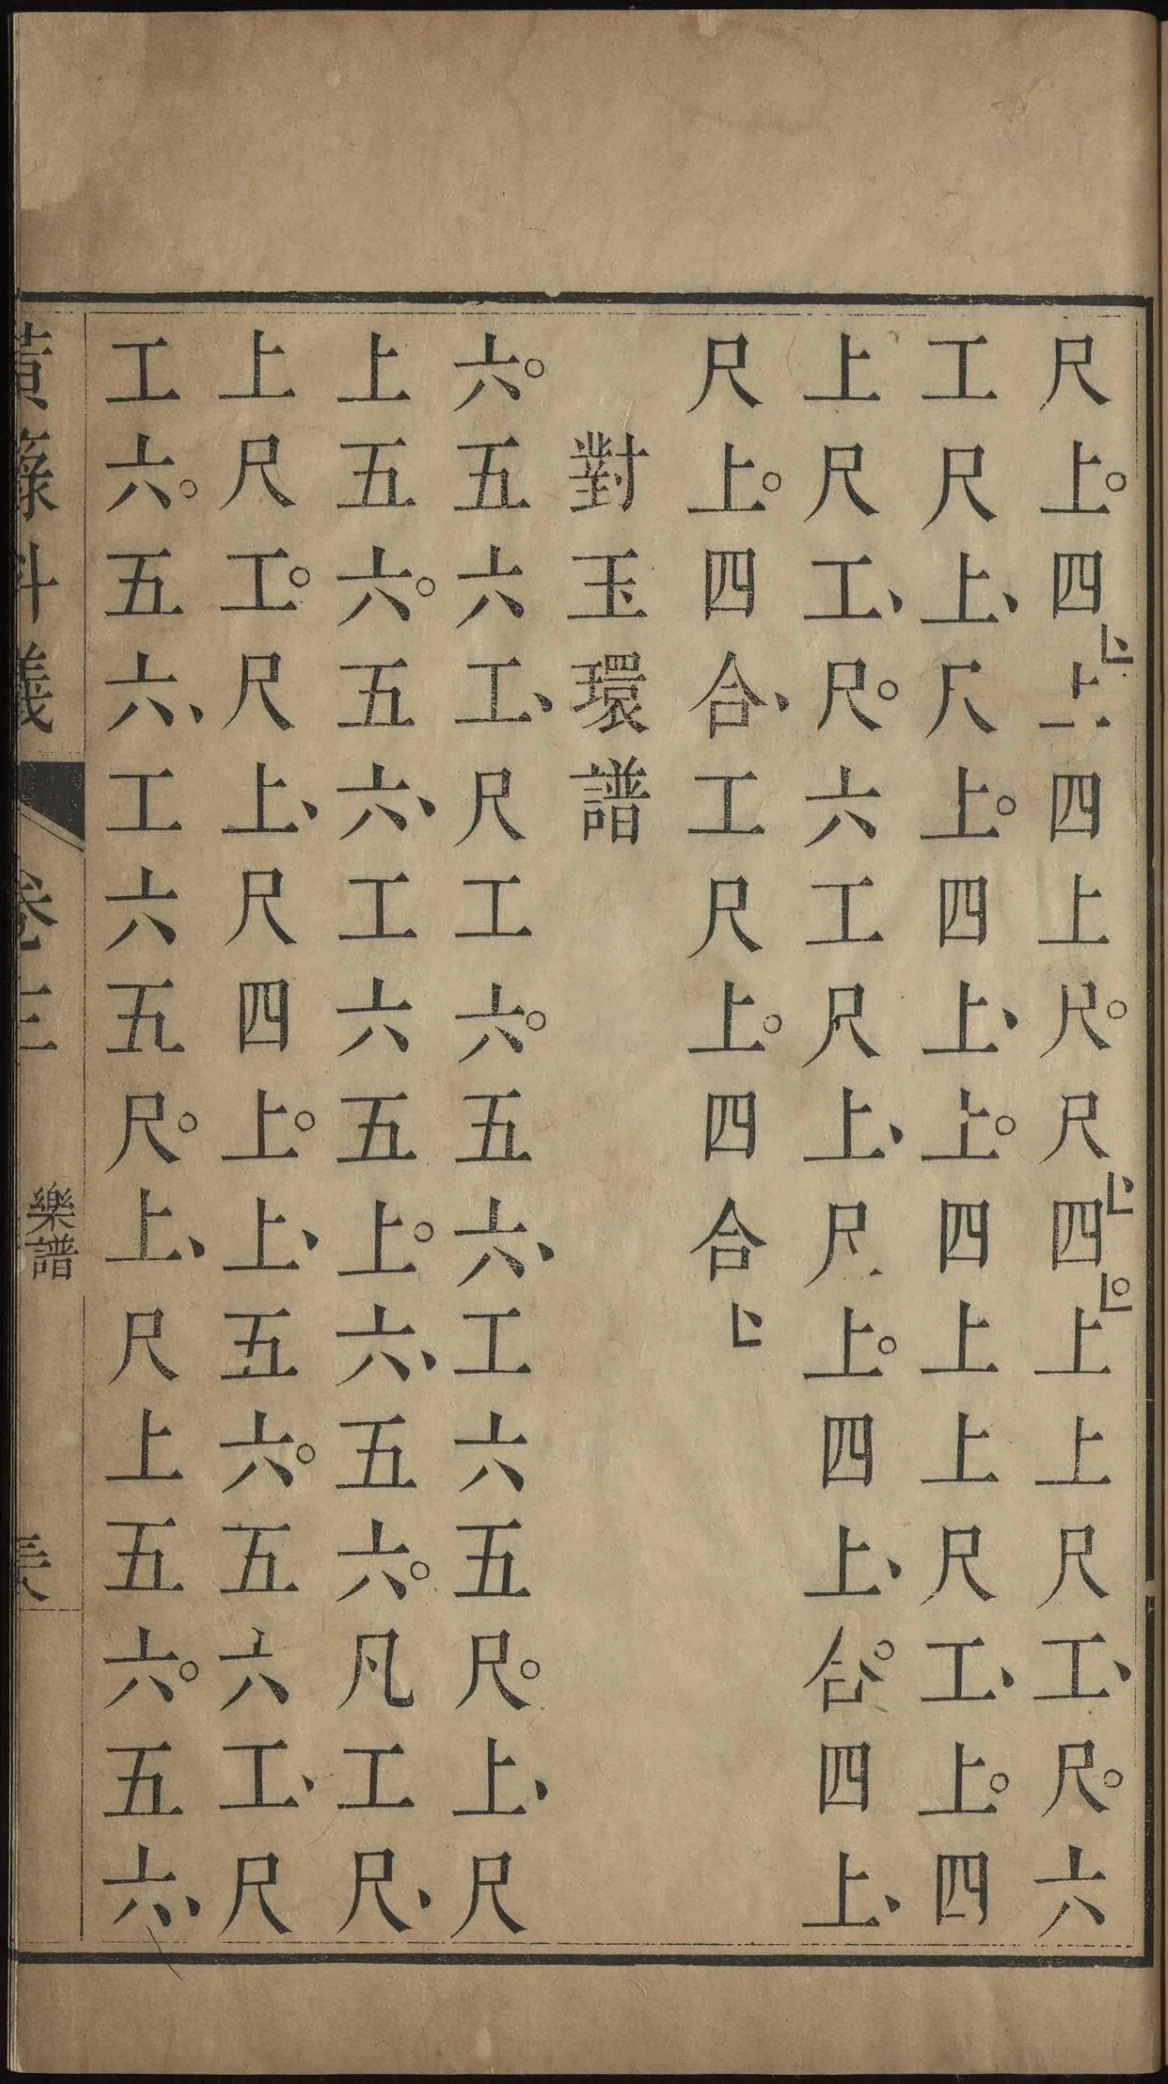 尺上○四上四上尺○尺四上上尺工、尺○六
工尺上、尺上○四上、上○四上上尺工、上○四
上尺工、尺○六工尺上、尺上○四上、合○四上、
尺上○四合、工尺上○四合
對玉環譜
六○五六工、尺工六○五六、工六五尺○上、尺
上五六○五六、工六五上○六、五六○凡工尺、
上尺工○尺上、尺四上○上、五六○五六工、尺
工六○五六、工六五尺○上、尺上五六○五六、
黃籙科儀 卷三 樂譜